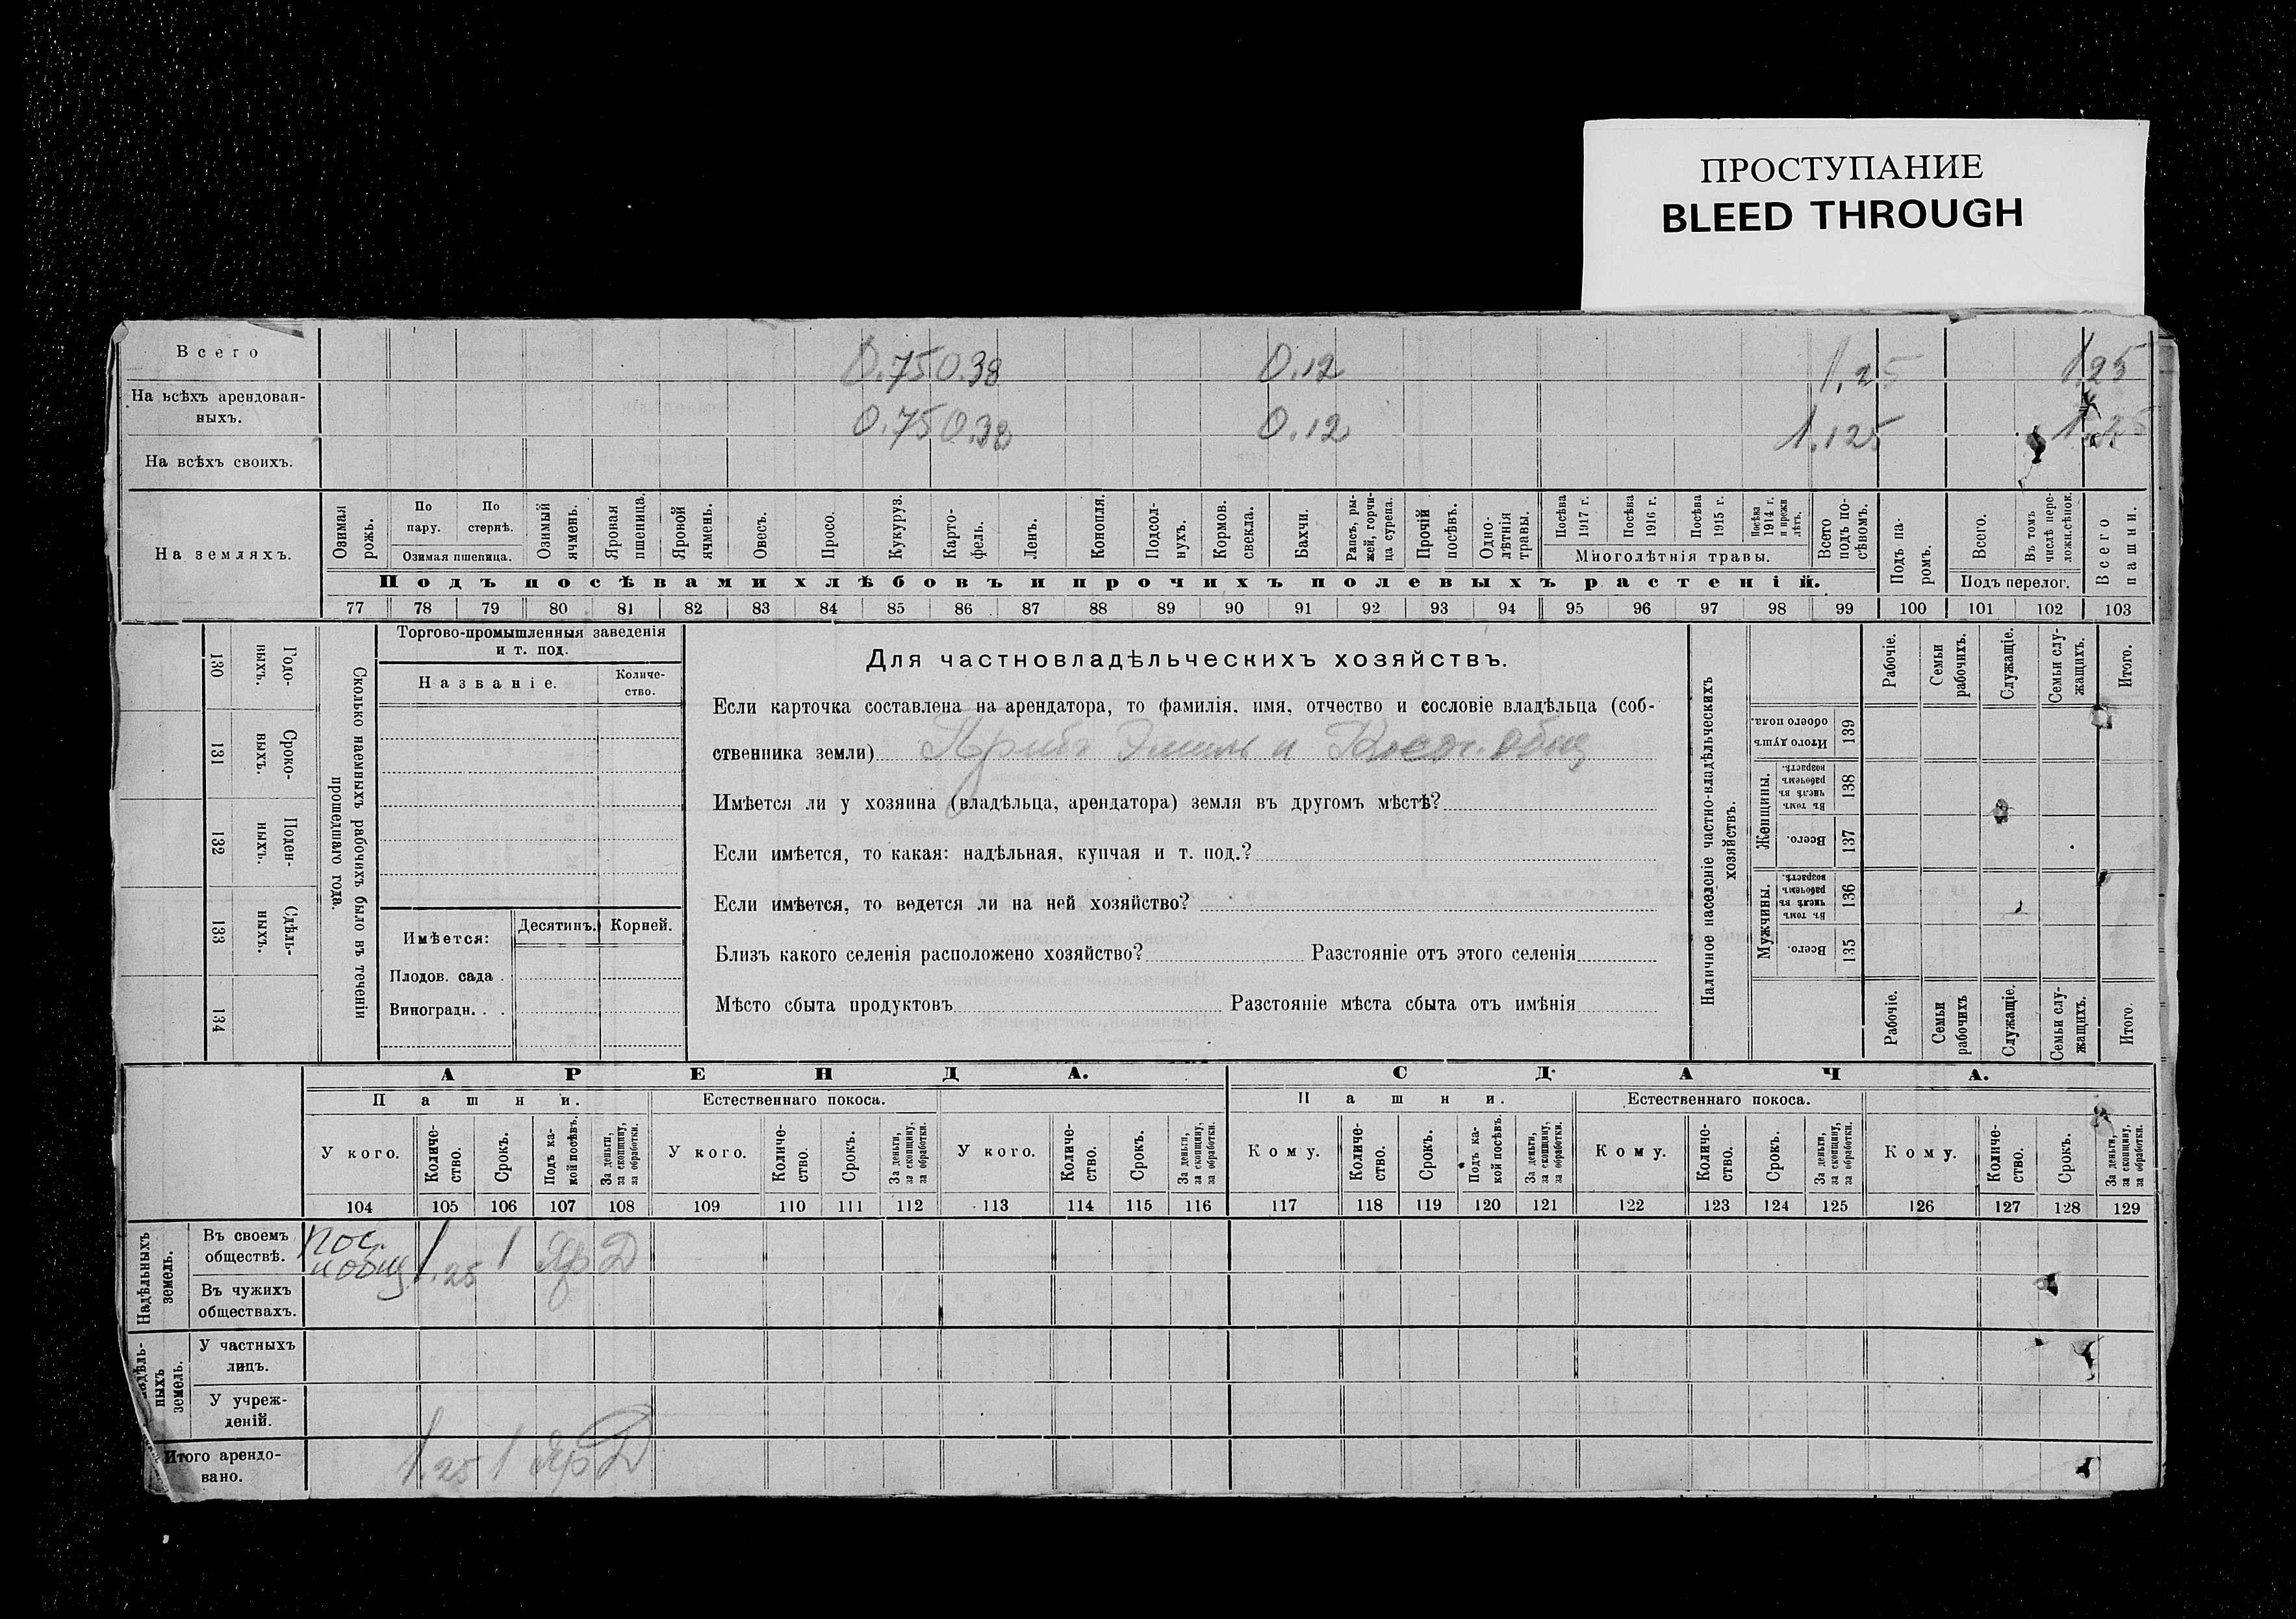 ПРОСТУПАНИЕ
BLEED THROUGH
Всего
0.75 0.38 0.12 1.25 1.25
На всѣхъ арендован-
ныхъ.
0.75 0.38 0.12 1.125
На всѣхъ своихъ.
На земляхъ.
Озимая рожь.
По пару.
По стернѣ.
Озимая пшеница.
Озимый ячмень.
Яровая пшеница.
Яровой ячмень.
Овесъ.
Просо.
Кукуруз.
Карто-
фель.
Ленъ.
Конопля.
Подсол-
нухъ.
Кормов. свекла.
Бахчи.
Рапсъ, ры-
жей, горчи-
ца сурепа.
Прочій посѣвъ.
Одно-
лѣтнія травы.
Посѣва 1917 г.
Посѣва 1916 г.
Посѣва 1915 г.
Посѣва 1914 г. и прежн лѣтъ.
Многолѣтнія травы.
Всего подъ по-
сѣвомъ.
Подъ па-
ромъ.
Всего.
Въ томъ числѣ пере-
ложн.сѣнок.
Подъ перелог.
Всего пашни.
Подъ посѣвами хлѣбовъ и прочихъ полевыхъ растеній.
77 78 79 80 81 82 83 84 85 86 87 88 89 90 91 92 93 94 95 96 97 98 99 100 101 102 103
130 Годо-
ныхъ.
131 Сроко-
ныхъ.
132 Поден-
ныхъ.
133 Сдѣль-
ныхъ.
134
Сколько наемныхъ рабочихъ было въ теченіи
прошедшаго года.
Торгово-промышленныя заведенія
и т. под.
Названіе.
Количе-
ство.
Имѣется:
Десятинъ.
Корней.
Плодов. сада .
Виноградн. . .
Для частновладѣльческихъ хозяйствъ.
Если карточка составлена на арендатора, то фамилія, имя, отчество и сословіе владѣльца (соб-
ственника земли)
Имѣется ли у хозяина (владѣльца, арендатора) земля въ другомъ мѣстѣ?
Если имѣется, то какая: надѣльная, купчая и т. под.?
Если имѣется, то ведется ли на ней хозяйство?
Близъ какого селенія расположено хозяйство? Разстояніе отъ этого селенія
Мѣсто сбыта продуктовъ Разстояніе мѣста сбыта отъ имѣнія
Наличное населеніе частно-владѣльческихъ
хозяйствъ.
Рабочіе.
Семьи рабочихъ.
Служащіе.
Семьи слу-
жащихъ.
Итого.
Итого душъ обоего пола.
139
Женщины.
Въ томъ числѣ въ рабочемъ возрастѣ.
138
Всего.
137
Мужчины.
Въ томъ числѣ въ рабочемъ возрастѣ.
136
Всего.
135
Рабочіе.
Семьи рабочихъ
Служащіе.
Семьи слу-
жащихъ.
Итого.
АРЕНДА.
СДАЧА.
Пашни.
Естественнаго покоса.
Пашни.
Естественнаго покоса.
У кого.
Количе-
ство.
Срокъ.
Подъ ка-
кой посѣвъ.
За деньги,
за скопщину,
за обработки.
У кого.
Количе-
ство.
Срокъ.
За деньги,
за скопщину,
за обработки.
У кого.
Количе-
ство.
Срокъ.
За деньги,
за скопщину,
за обработки.
Кому.
Количе-
ство.
Срокъ.
Подъ ка-
кой посѣвъ.
За деньги,
за скопщину,
за обработки.
Кому.
Количе-
ство.
Срокъ.
За деньги,
за скопщину,
за обработки.
Кому.
Количе-
ство.
Срокъ.
За деньги,
за скопщину,
за обработки.
104 105 106 107 108 109 110 111 112 113 114 115 116 117 118 119 120 121 122 123 124 125 126 127 128 129
Надѣльныхъ
земель.
Въ своемъ
обществѣ.
1.25 1 Яр Д
Въ чужихъ
обществахъ.
ныхъ
земель.
У частныхъ
лицъ.
У учреж-
деній.
Итого арендо-
вано.
1.25 1 Яр Д